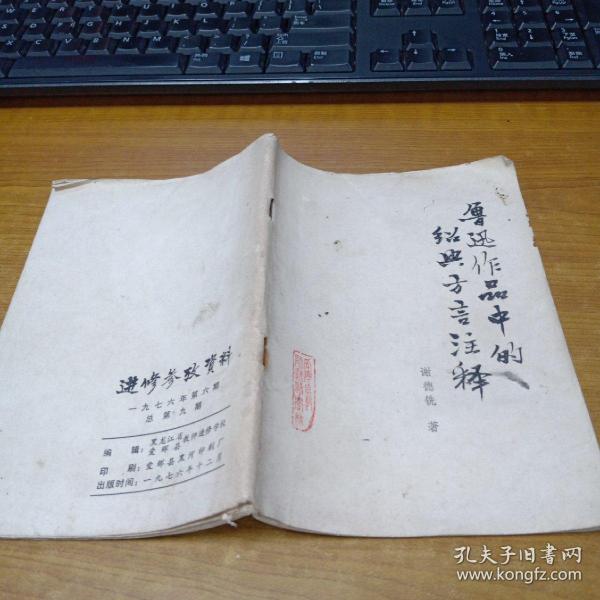 鲁迅作品中的
绍兴方言注释
谢德铣 著
进修参考资料
一九七六年第六期
总第九期
编辑：黑龙江省爱辉县教师进修学校
印刷：爱辉县黑河印刷厂
出版时间：一九七六年十二月
孔夫子旧书网
www.kongfz.com